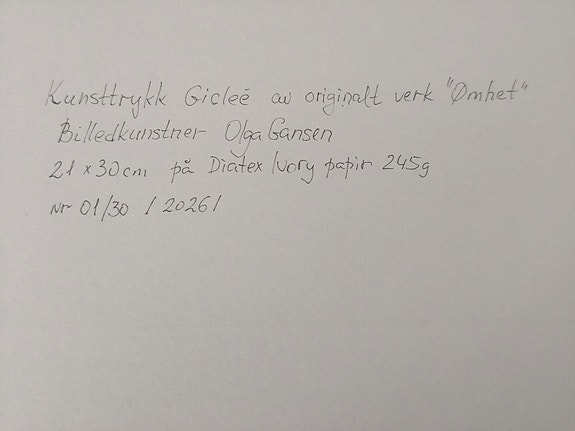 Kunsttrykk Gicleé av originalt verk "Ømhet"
Billedkunstner Olga Gansen
21 x 30cm på Diatex Ivory papir 245g
Nr 01/30 / 2026/